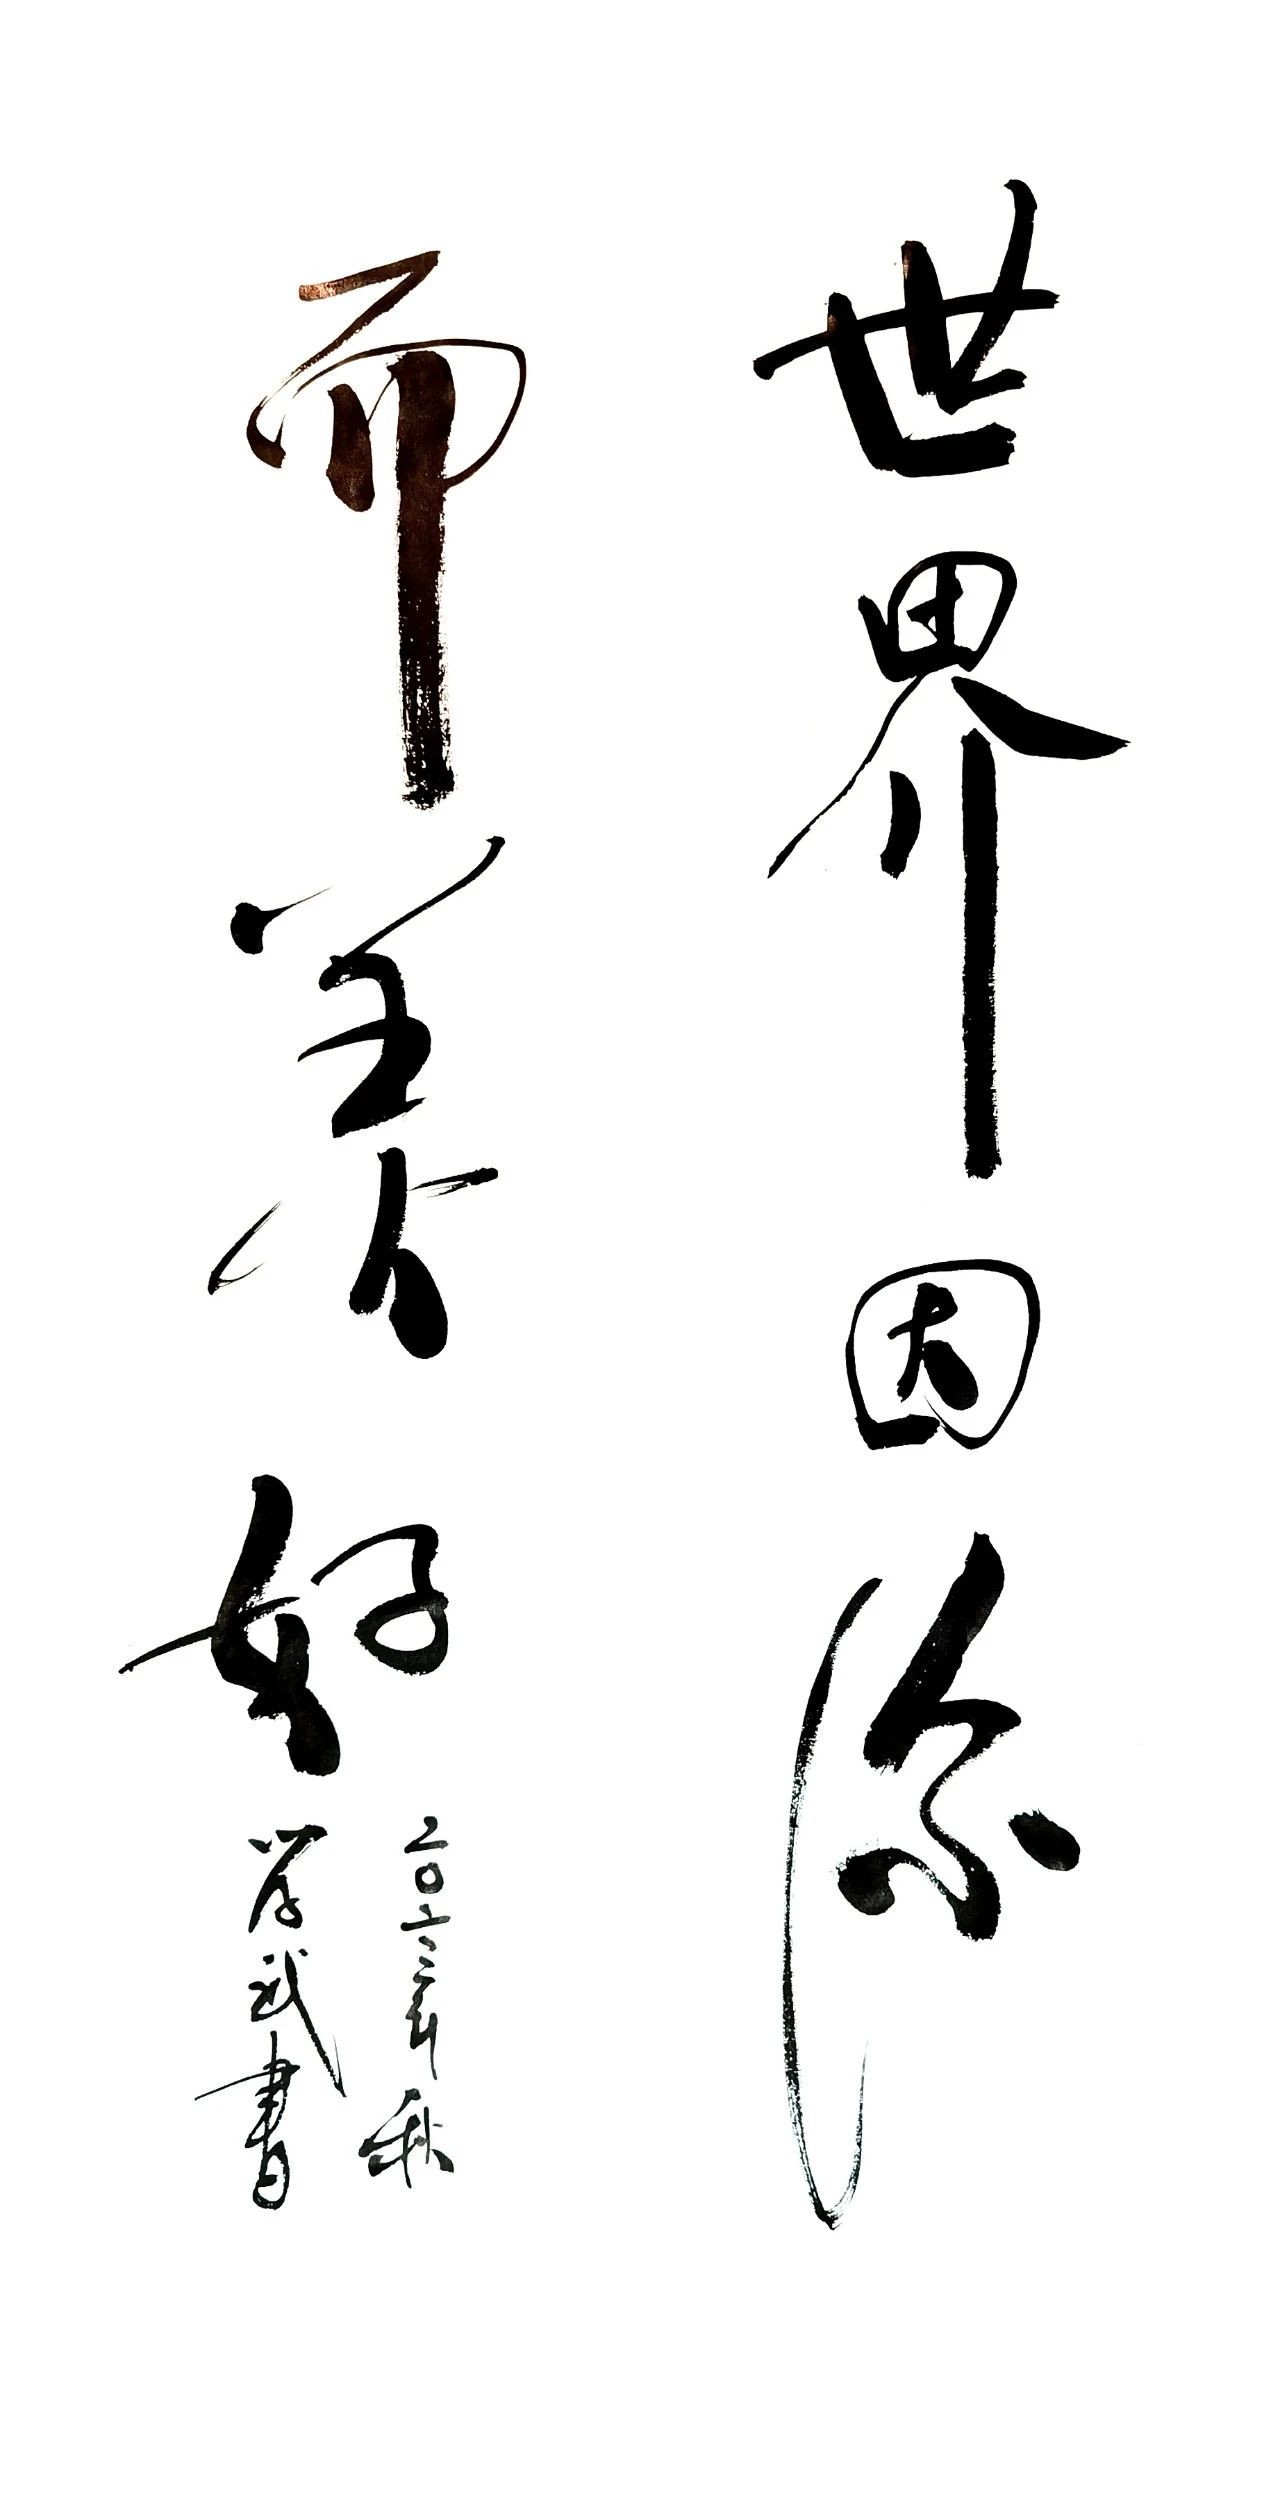 世界因你
而美好
二〇二二年秋
学武書